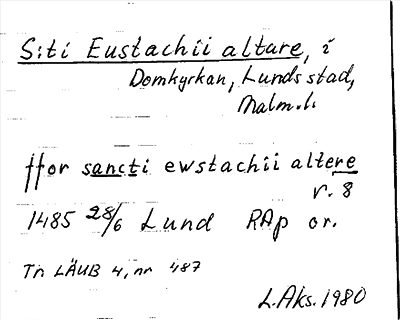 S:ti Eustachii altare, i
Domkyrkan, Lunds stad,
Malm. l.
ffor sancti ewstachii altere
r. 8
1485 28/6 Lund RAp or.
Tr LÄUB 4, nr 487
L.Aks. 1980